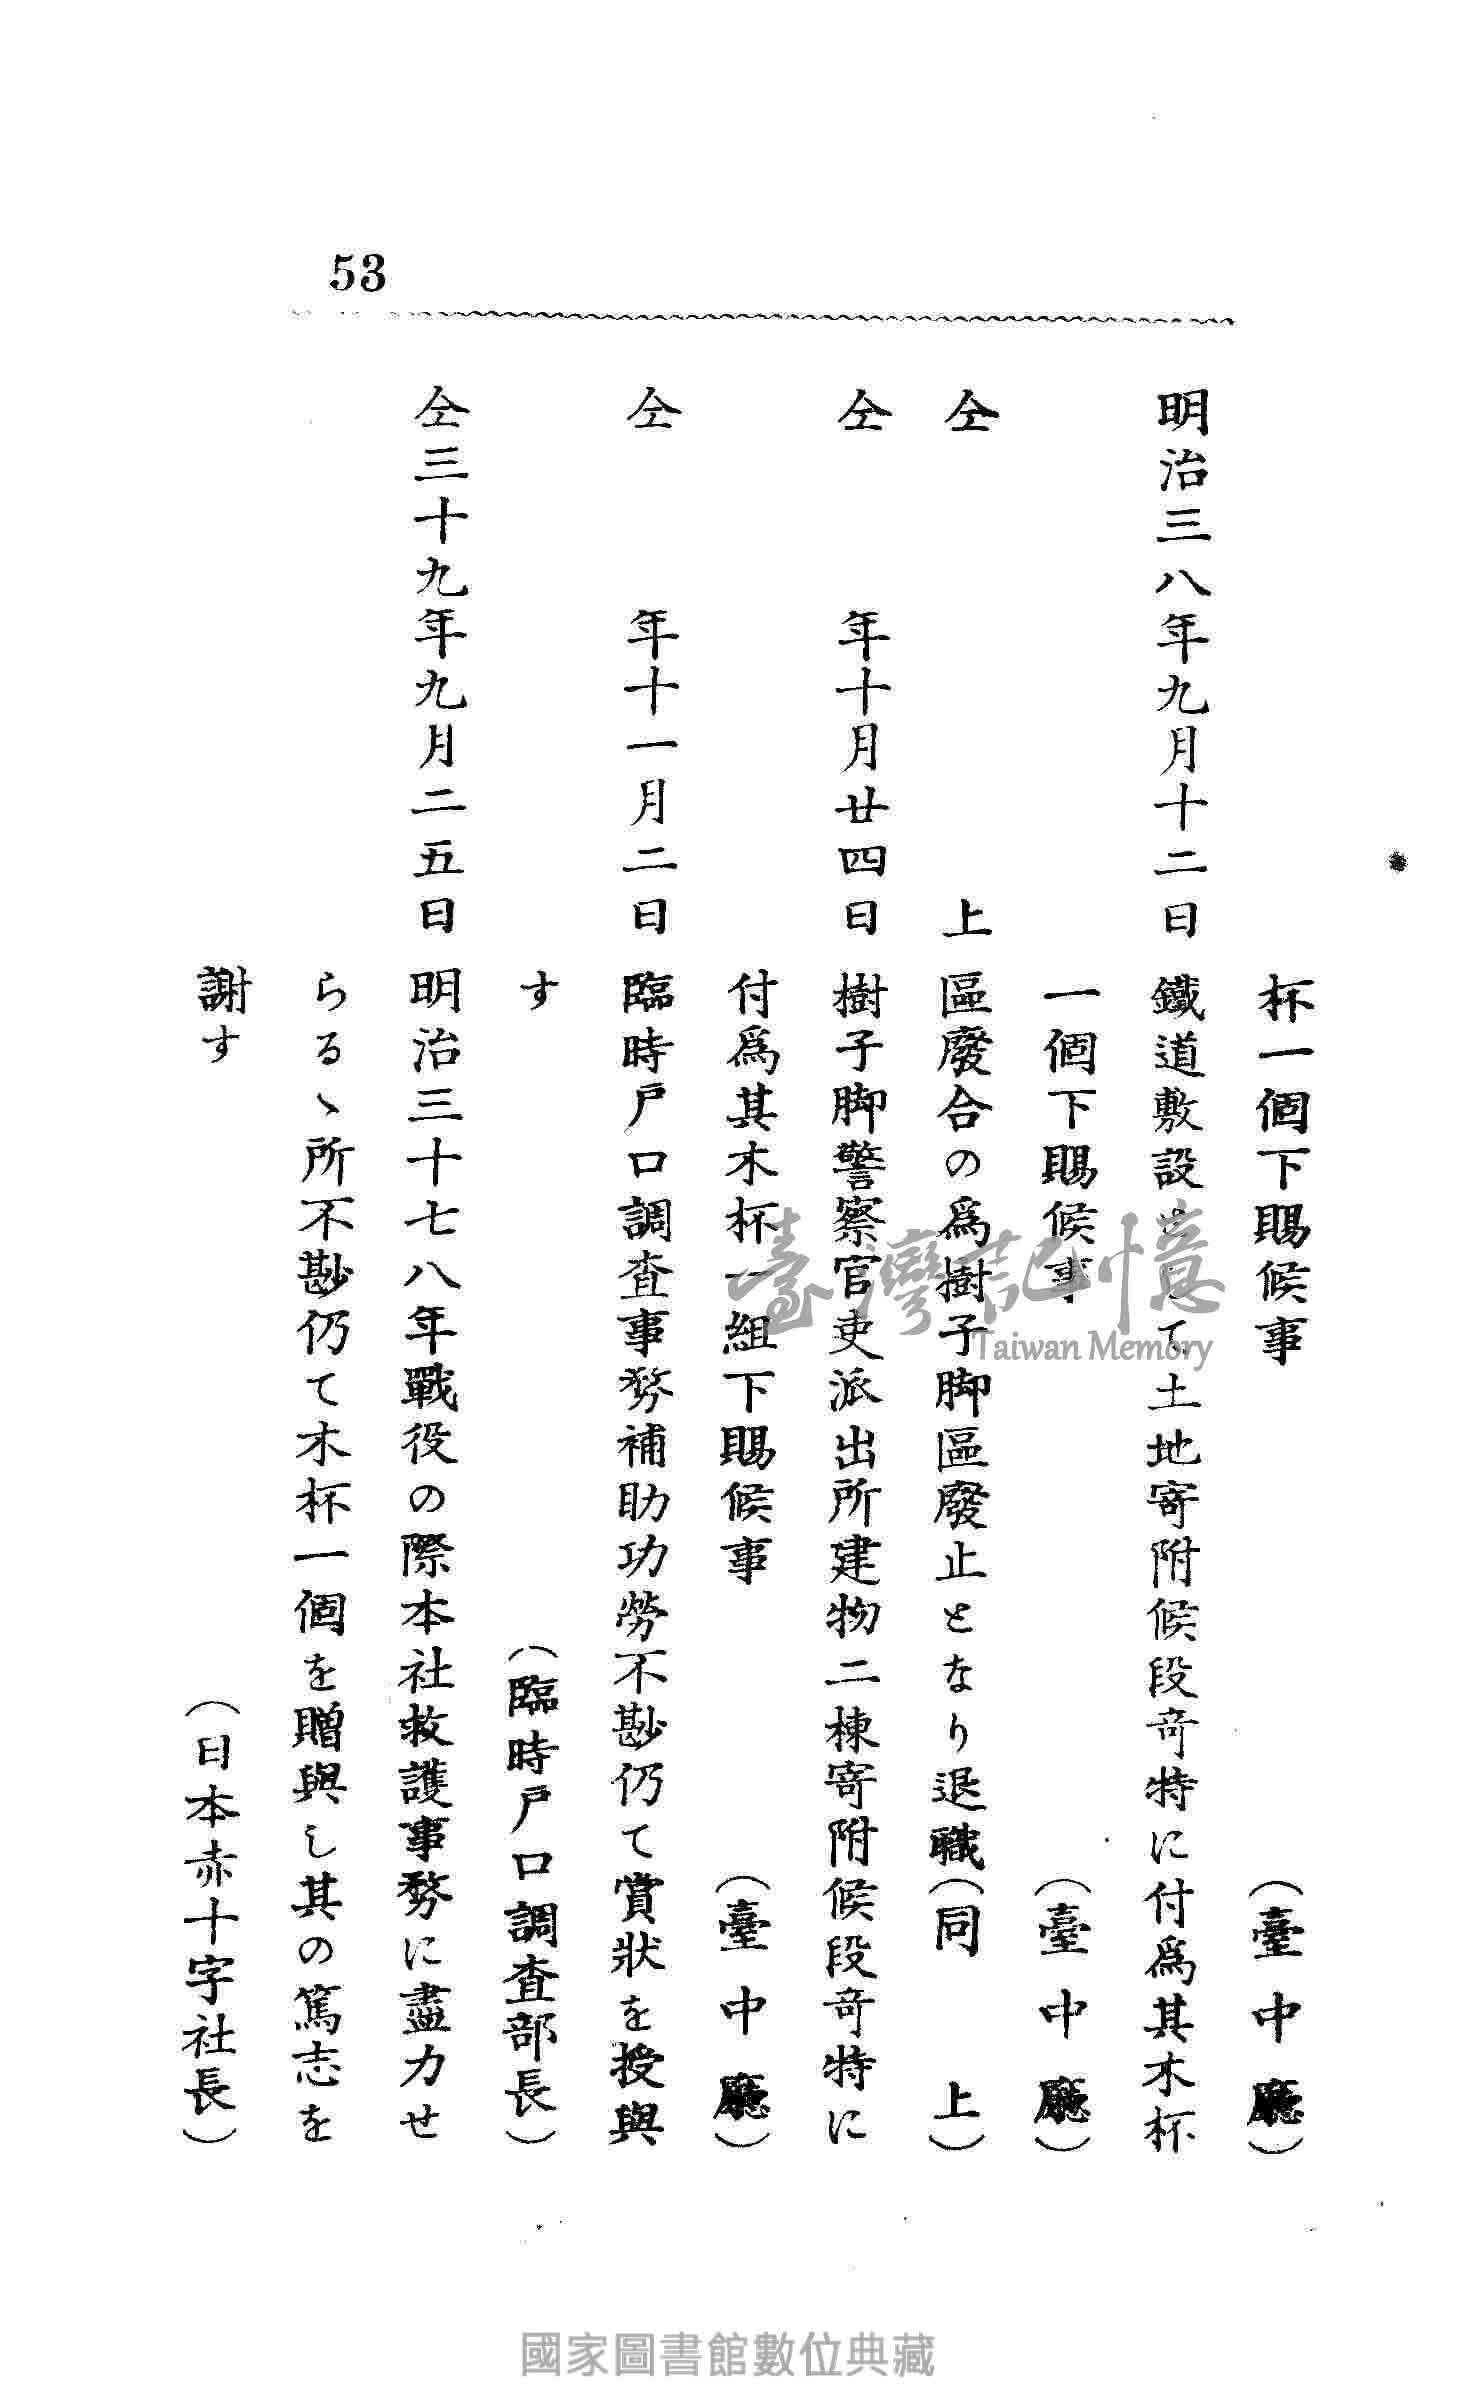 53
杯一個下賜候事　（臺中廳）
明治三八年九月十二日　鐵道敷設として土地寄附候段竒特に付爲其木杯
一個下賜候事　（臺中廳）
仝　上　區廢合の爲樹子脚區廢止となり退職（同上）
仝　年十月廿四日　樹子脚警察官吏派出所建物二棟寄附候段竒特に
付爲其木杯一組下賜候事　（臺中廳）
仝　年十一月二日　臨時戸口調査事務補助功勞不尠仍て賞狀を授與
す　（臨時戸口調査部長）
仝三十九年九月二五日　明治三十七八年戰役の際本社救護事務に盡力せ
らるゝ所不尠仍て木杯一個を贈與し其の篤志を
謝す　（日本赤十字社長）
臺灣記憶
Taiwan Memory
國家圖書館數位典藏